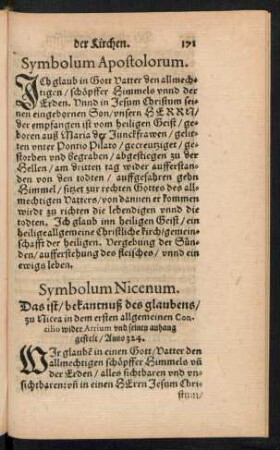 der Kirchen. 171
Symbolum Apostolorum.
ICh glaub in Gott Vatter den allmech-
tigen / schöpffer Himmels vnnd der
Erden. Vnnd in Jesum Christum sei-
nen eingebornen Son / vnsern HERRN /
der empfangen ist vom heiligen Geist / ge-
boren auß Maria der Junckfrawen / gelit-
ten vnter Pontio Pilato / gecreutziget / ge-
storben vnd begraben / abgestiegen zu der
Hellen / am dritten tag wider aufferstan-
den von den todten / auffgefaren gehn
Himmel / sitzet zur rechten Gottes des all-
mechtigen Vatters / von dannen er kommen
wirdt zu richten die lebendigen vnnd die
todten. Ich glaub inn heiligen Geist / ein
heilige allgemeine Christliche kirch / gemein-
schafft der heiligen. Vergebung der Sün-
den / aufferstehung des fleisches / vnnd ein
ewigs leben.
Symbolum Nicenum.
Das ist / bekantnuß des glaubens /
zu Nicea in dem ersten allgemeinen Con-
cilio wider Arrium vnd seinen anhang
gestelt / Anno 324.
WIr glaubẽ in einen Gott / Vatter den
allmechtigen schöpffer Himmels vñ
der Erden / alles sichtbaren vnd vn-
sichtbaren: vñ in einen HErrn Jesum Chri-
stum /